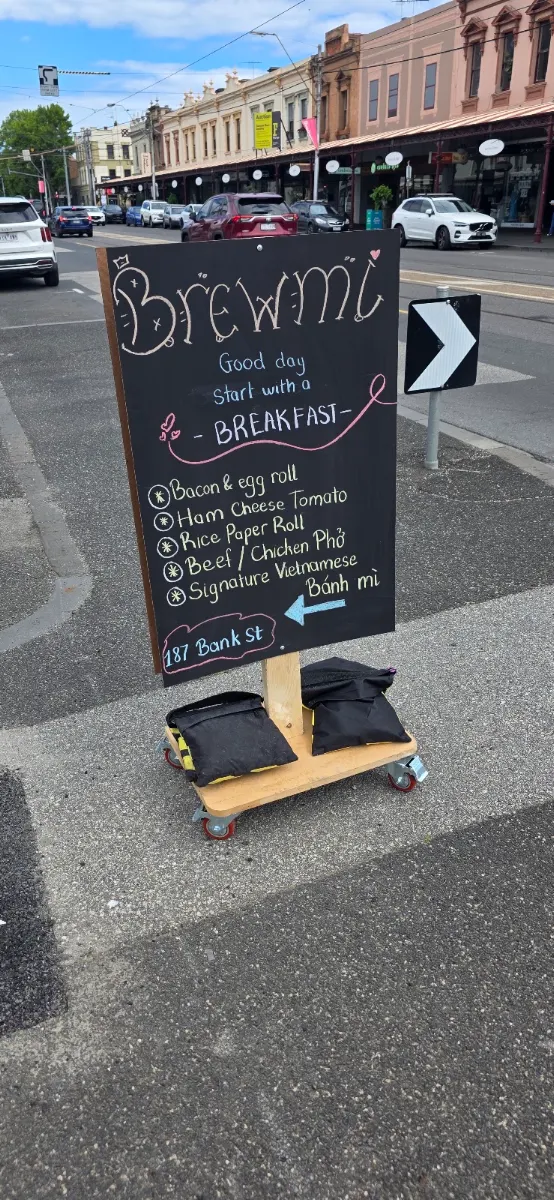 Brewmi
Good day
start with a
- BREAKFAST-
Bacon & egg roll
Ham Cheese Tomato
Rice Paper Roll
Beef / Chicken Phở
Signature Vietnamese
Bánh mì
187 Bank st